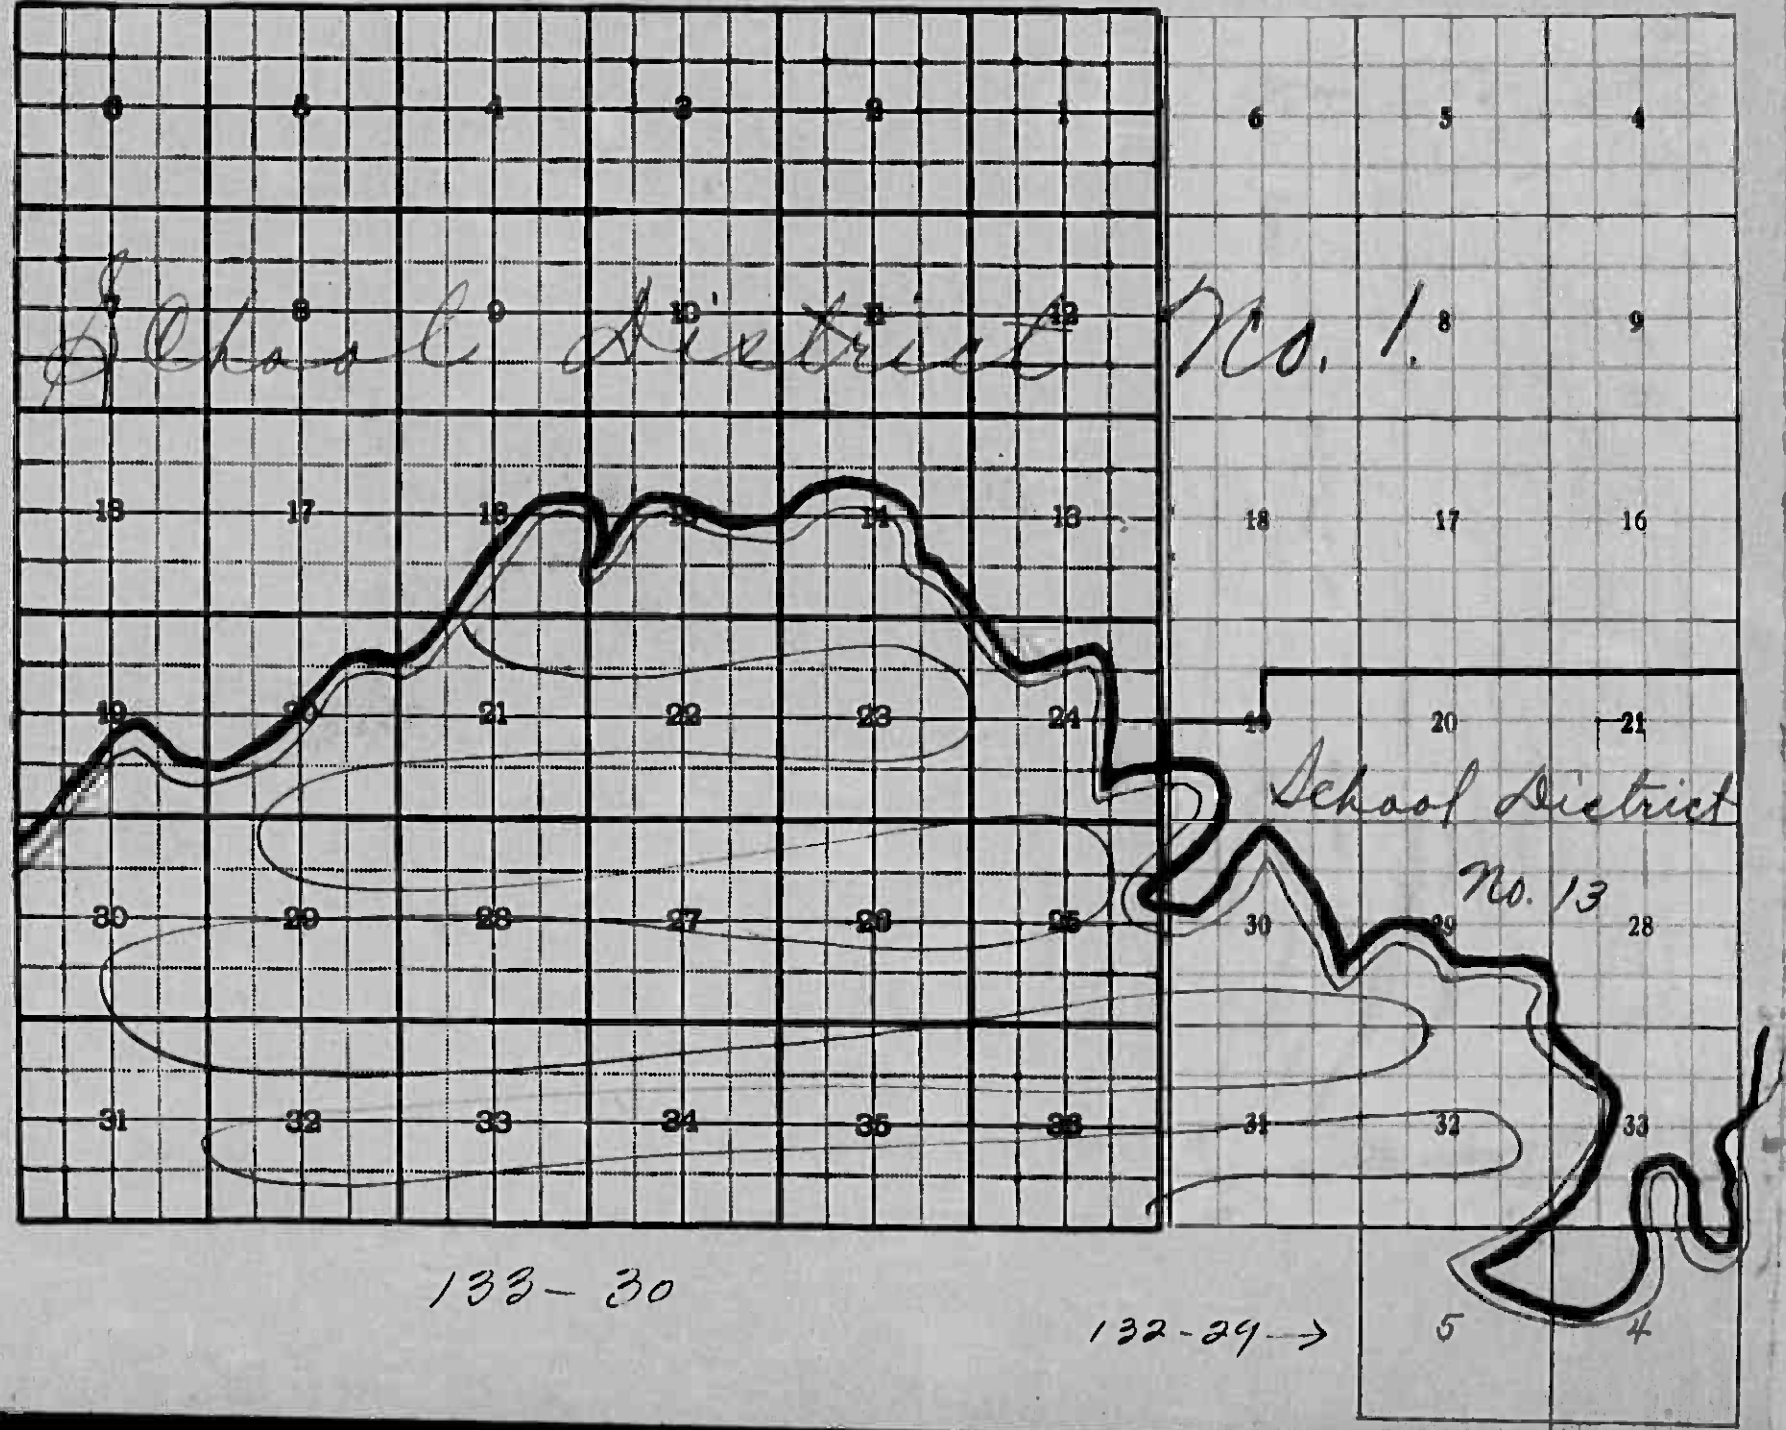 6 5 4 3 2 1 6 5 4
7 8 9 10 11 12 7 8 9
School District No. 1.
18 17 16 15 14 13 18 17 16
19 20 21 22 23 24 19 20 21
School District
No. 13
30 29 28 27 26 25 30 29 28
31 32 33 34 35 36 31 32 33
133-30
132-29→ 5 4